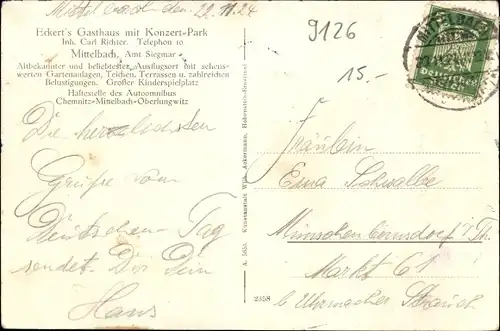 Mittelbach den 29.11.24
Eckert's Gasthaus mit Konzert-Park
Inh. Carl Richter. Telephon 10
Mittelbach, Amt Siegmar
Altbekannter und beliebtester Ausflugsort mit sehens-
werten Gartenanlagen, Teichen, Terrassen u. zahlreichen
Belustigungen. Großer Kinderspielplatz
Haltestelle des Autoomnibus
Chemnitz-Mittelbach-Oberlungwitz
Die herzlichsten
Grüße vom
Deutschen Tag
sendet Dir Dein
Hans
A. 5655. Kunstanstalt Wilh. Ackermann, Hohenstein-Ernstthal
9126
15.-
MITTELBACH
Deutsches Reich
Fräulein
Erna Schwalbe
Münchenbernsdorf i. Th.
Markt 61
b. Uhrmacher Strauch
2358